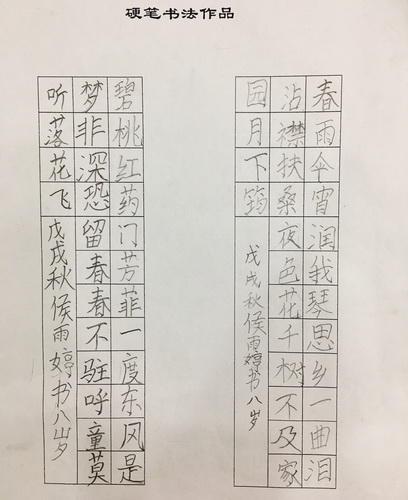 硬笔书法作品
春雨伞宵润我琴思乡一曲泪
沾襟扶桑夜色花千树不及家
园月下筠
戊戌秋侯雨婷书八岁
碧桃红药门芳菲一度东风是
梦非深恐留春春不驻呼童莫
听落花飞
戊戌秋侯雨婷书八岁